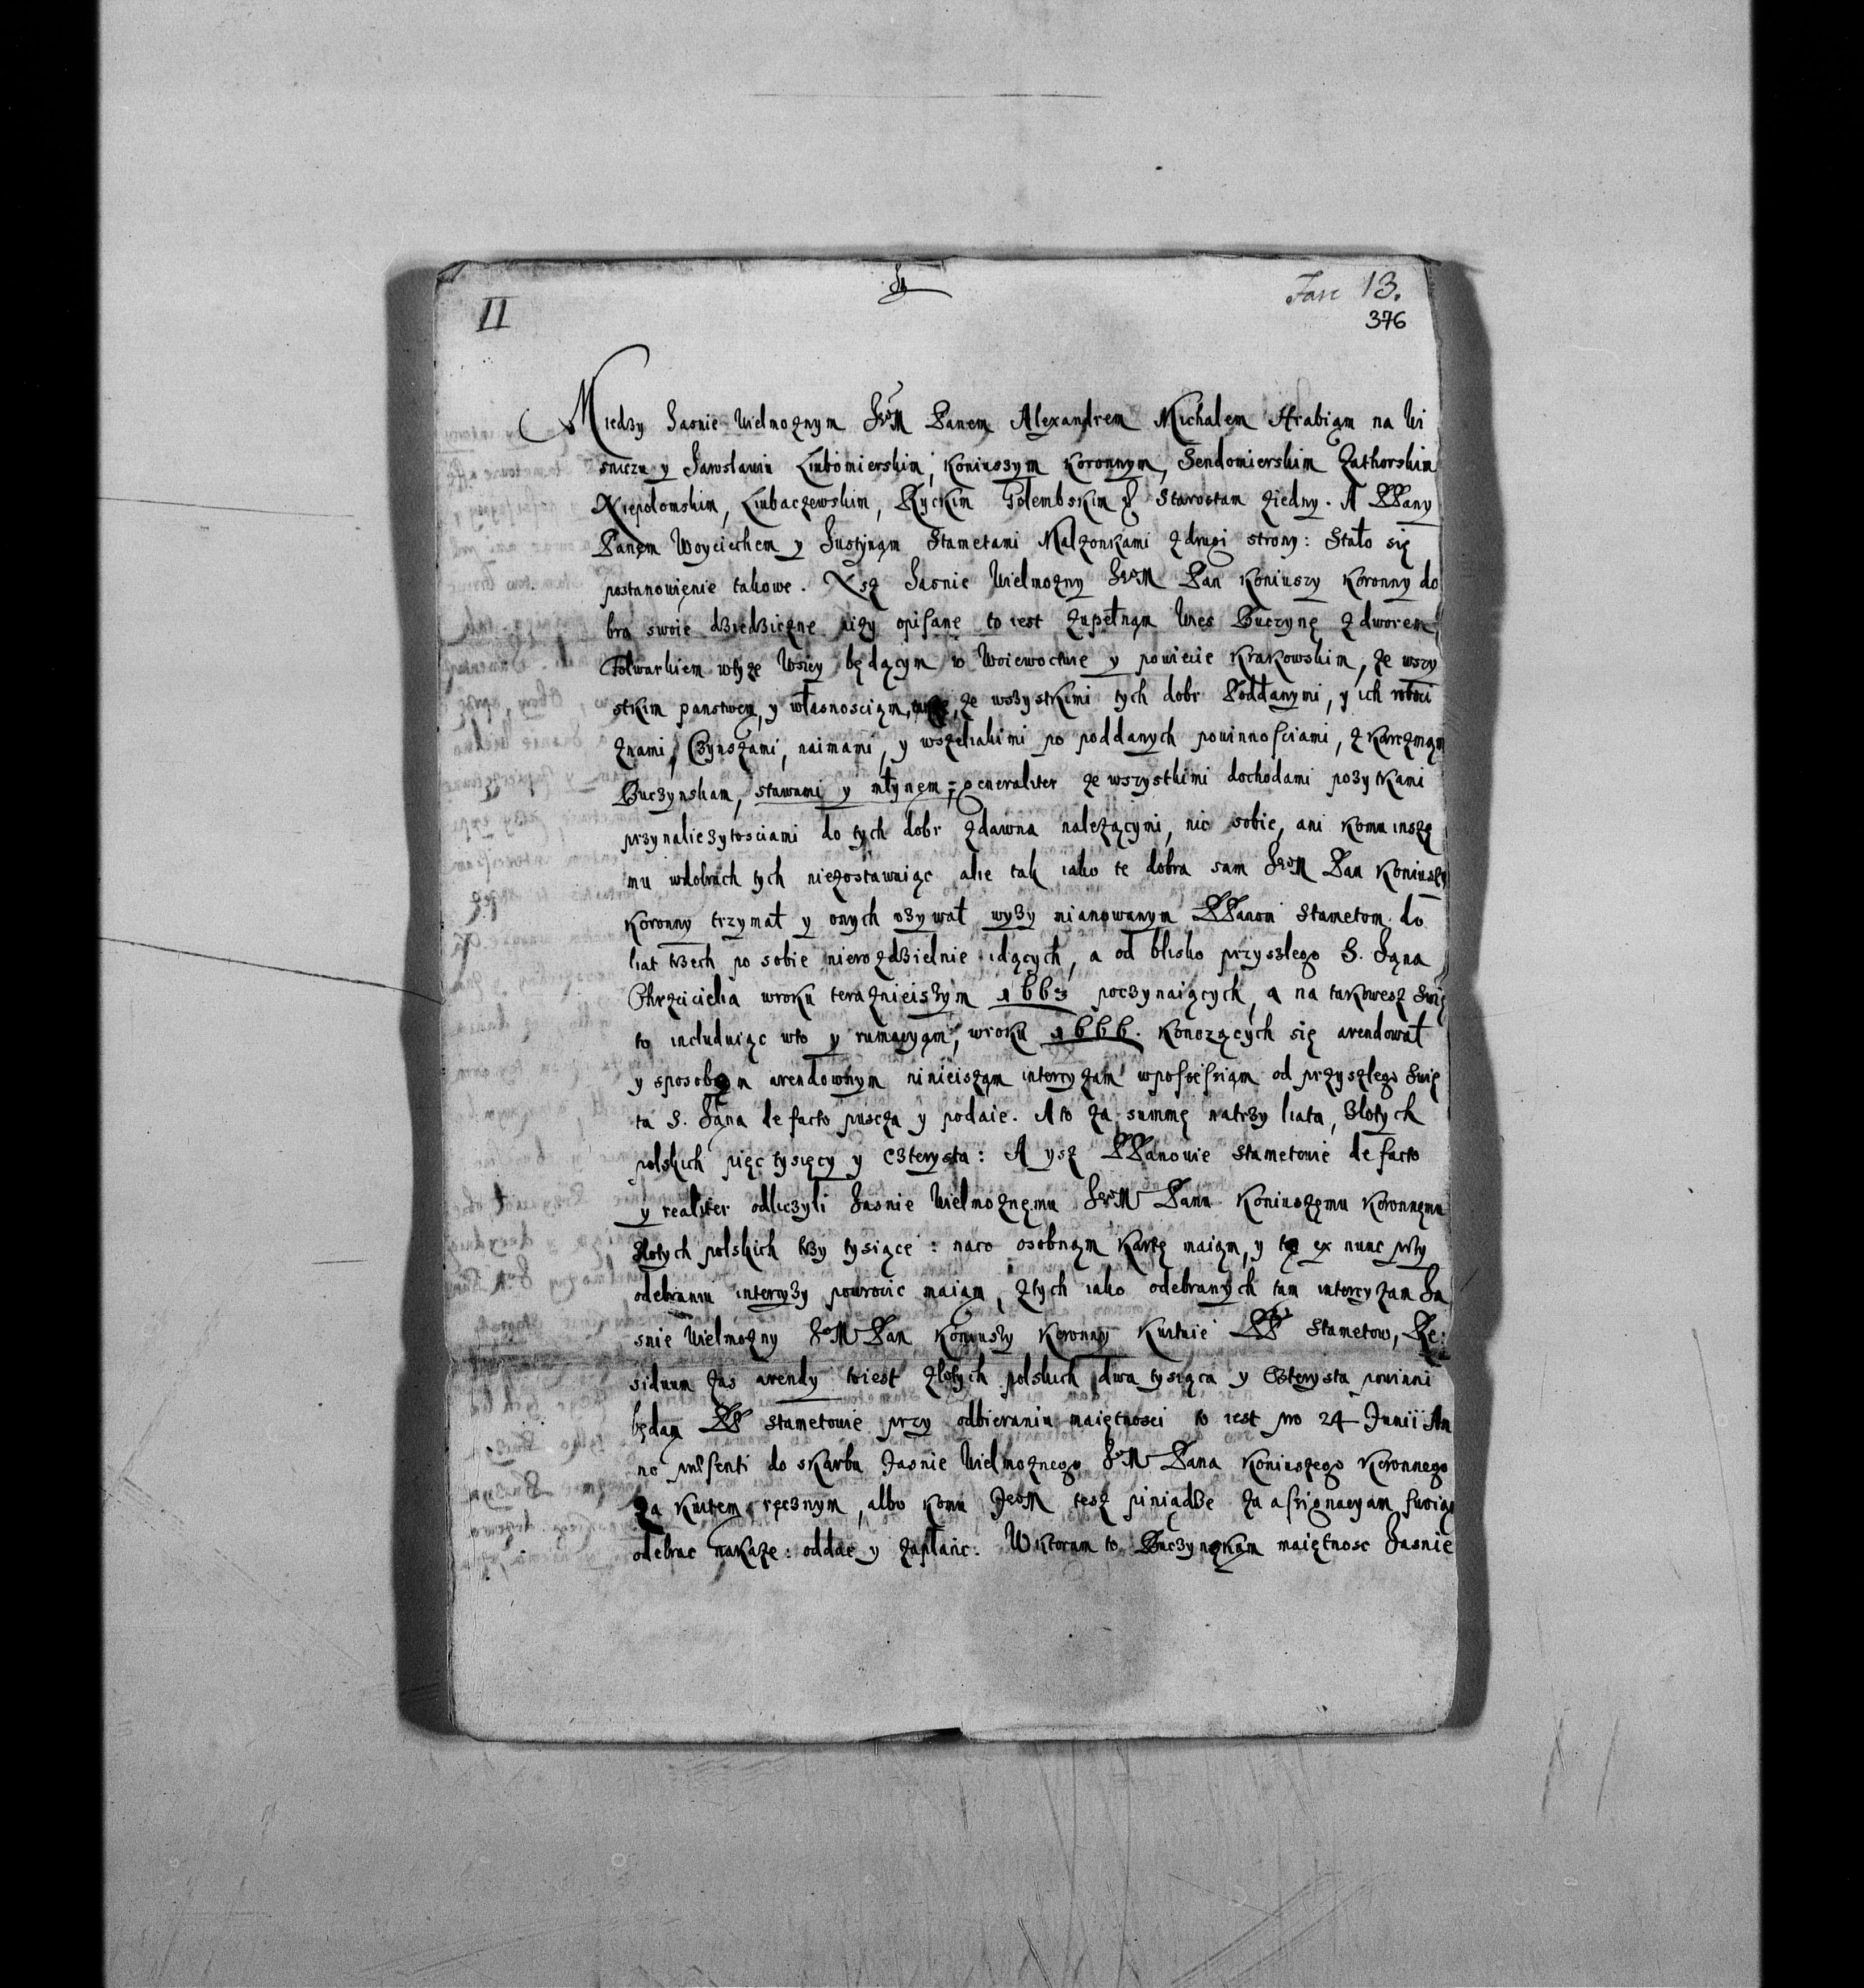 II
Fasc 13.
376
Miedzy Jasnie Wielmoznym JeoM Panem Alexandrem Michalem Hrabiąm na Wi
sniczu y Jarosławiu Lubomierskim, Koniuszym Koronnym, Sendomierskim Zathorskim
Niepolomskim, Lubaczewskim, Ryckim Golembskim & Starostam ziedny. A PPany
Panem Woyciechem y Justynąm Stametami Malzonkami z drugi strony: Stało się
postanowienie takowe. Ysz Jasnie Wielmozny JeoM Pan Koniuszy Koronny do
bra swoie dziedziczne nizy opisane to iest zupełnąm Wies Buczynę z dworem,
Folwarkiem wtyze Wsiey będącym w Woiewoctwie y powiecie Krakowskim, ze wszy
stkim panstwem, y własnosciąm, ze wszystkimi tych dobr Poddanymi, y ich roboci
znami, Czynszami, naimami, y wszeliakimi po poddanych powinnosciami, z Karczmąm
Buczynskam, stawami y młynem; generaliter ze wszystkimi dochodami pozytkami
przynaliezytosciami do tych dobr zdawna nalezącymi, nic sobie, ani komu insze
mu wdobrach tych niezostawuiąc alie tak iako te dobra sam JeoM Pan Koniuszy
Koronny trzymał y onych uzywał wyzy mianowanym PPanom Stametom do
liat trzech po sobie nierozdzielnie idących, a od blisko przyszlego S. Jąna
Chrzciciela wroku teraznieiszym 1663 poczynaiących, a na takowesz Swię
to includuiąc wto y rumacyąm, wroku 1666. Konczących się arendował
y sposobem arendownym ninieisząm intercyzam wpossessiąm od przyszlego Swię
ta S. Jąna de facto puscza y podaie. A to za summę natrzy liata, Zlotych
polskich pięc tysięcy y Czterysta: A ysz PPanowie Stametowie de facto
y realiter odliczyli Jasnie Wielmoznemu JeoM Panu Koniuszemu Koronnemu
Złotych polskich trzy tysiące: naco osobnąm Kartę maiąm, y tę ex nunc przy
odebraniu intercyzy powrocic maiąm, ztych iako odebranych tam intercyzam Ja
snie Wielmozny JeoM Pan Koniuszy Koronny Kwituie PP Stametow, Re:
siduum zas arendy toiest złotych polskich dwa tysiąca y Czterysta powinni
będam PP Stametowie przy odbieraniu maiętnosci to iest pro 24 Junii An
no presenti do skarbu Jasnie Wielmoznego JeoM Pana Koniuszego Koronnego
za Kwitem ręcznym, albo komu JeoM tesz piniądze za assignacyam swoią
odebrac nakaze: oddac y zapłaic. Wktoram to Buczynskam maiętnosc Jasnie